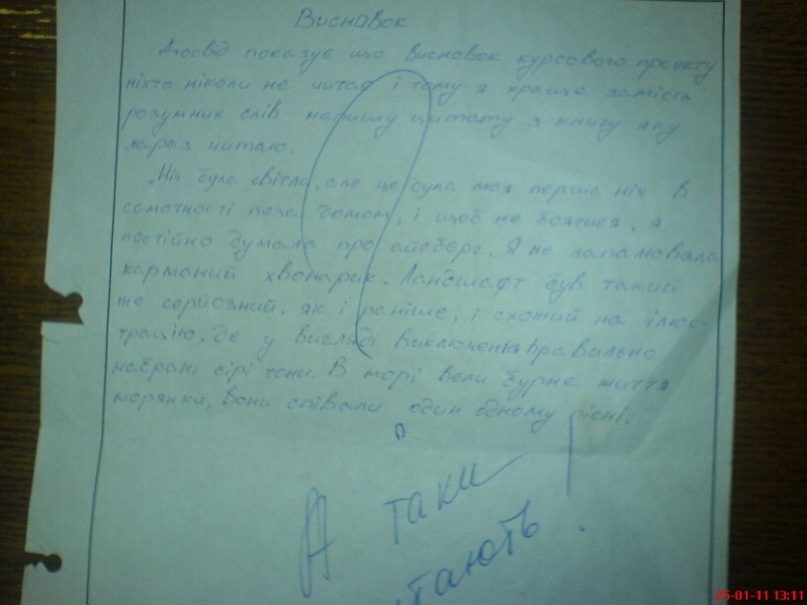 Висновок
Досвід показує що висновок курсового проекту
ніхто ніколи не читає і тому я краще замість
розумних слів напишу цитату з книгу яку
зараз читаю.
„Ніч була світла, але це була моя перша ніч в
самотності поза домом, і щоб не боятися, я
постійно думала про айсберг. Я не запалювала
карманий хвонарик. Ландшафт був такий
же серйозний, як і раніше, і схожий на ілюс-
трацію, де у вигляді виключення правильно
набрані сірі тони. В морі вели бурне життя
морянки, вони співали один одному пісні.
А таки
читають!
25-01-11 13:11